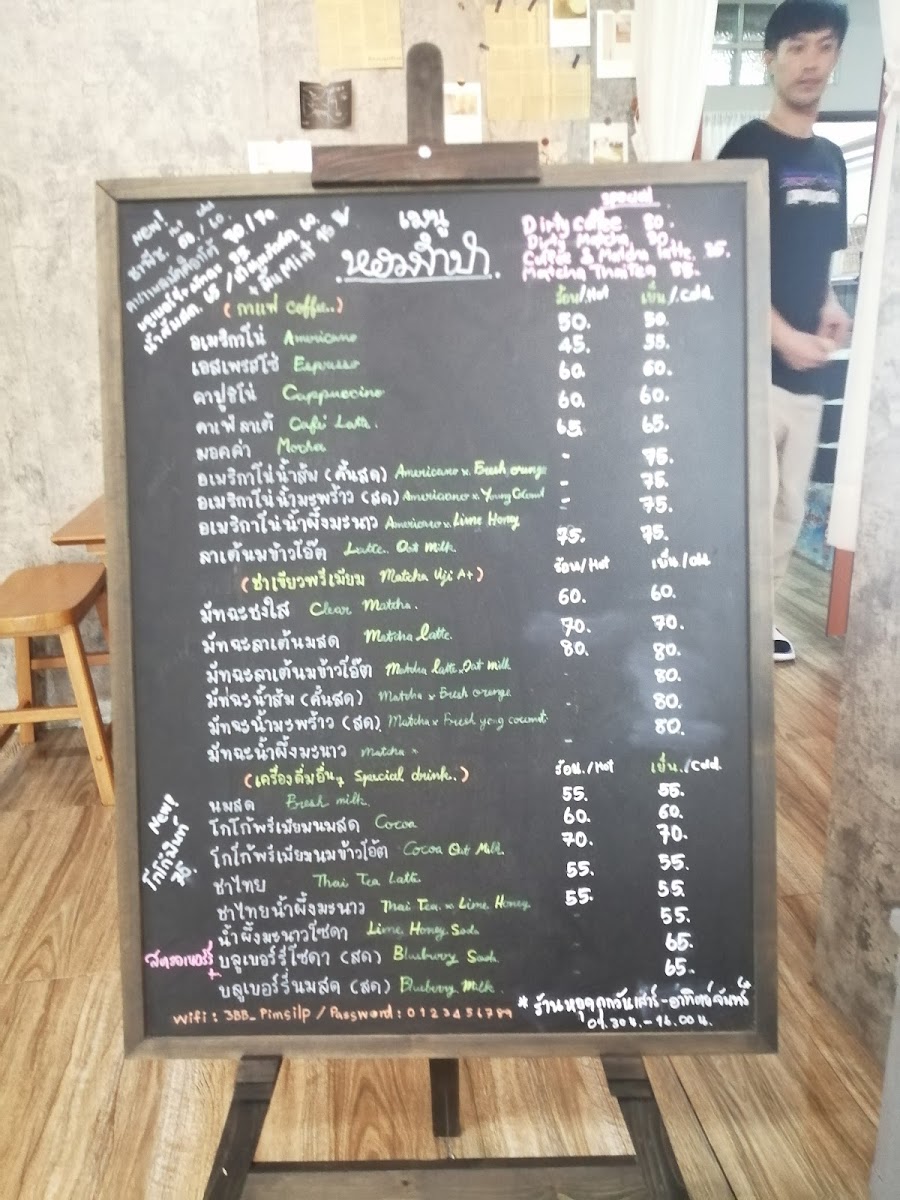 NEW!
เมนู
หอมลำปำ
special
Dirty coffee 80.
Dirty Matcha 90.
Coffee & Matcha latte. 95.
Matcha ThaiTea 85.
(กาแฟ coffee..) ร้อน/.Hot เย็น/.Cold.
อเมริกาโน่ Americano 50. 50.
เอสเพรสโซ่ Espresso 45. 55.
คาปูชิโน่ Cappuccino 60. 60.
คาเฟ่ลาเต้ Café Latte. 60. 60.
มอคค่า Mocha 65. 65.
อเมริกาโน่น้ำส้ม (คั้นสด) Americano x Fresh orange - 75.
อเมริกาโน่น้ำมะพร้าว (สด) Americano x Young - 75.
อเมริกาโน่น้ำผึ้งมะนาว Americano x Lime Honey - 75.
ลาเต้นมข้าวโอ๊ต Latte Oat milk 75. 75.
(ชาเขียวพรีเมียม Matcha Uji A+) ร้อน/Hot เย็น/cold
มัทฉะชงใส Clear Matcha. 60. 60.
มัทฉะลาเต้นมสด Matcha latte. 70. 70.
มัทฉะลาเต้นมข้าวโอ๊ต Matcha latte x Oat milk 80. 80.
มัทฉะน้ำส้ม (คั้นสด) Matcha x Fresh orange - 80.
มัทฉะน้ำมะพร้าว (สด) Matcha x Fresh yong coconut - 80.
มัทฉะน้ำผึ้งมะนาว Matcha x -
(เครื่องดื่มอื่นๆ Special drink.) ร้อน./Hot เย็น./Cold.
นมสด Fresh milk. 55. 55.
โกโก้พรีเมียมนมสด Cocoa 60. 60.
โกโก้พรีเมียมนมข้าวโอ๊ต Cocoa Oat Milk. 70. 70.
ชาไทย Thai Tea Latte 55. 55.
ชาไทยน้ำผึ้งมะนาว Thai Tea x Lime Honey 55. 55.
น้ำผึ้งมะนาวโซดา Lime Honey Soda - 55.
บลูเบอร์รี่โซดา (สด) Blueberry Soda. - 65.
บลูเบอร์รี่นมสด (สด) Blueberry Milk. - 65.
New!
โกโก้มิ้นท์
สตรอเบอร์รี่
Wifi : 3BB_Pimsilp / Password : 0123456789
* ร้านหยุดทุกวันเสาร์-อาทิตย์
09.30น.-16.00น.